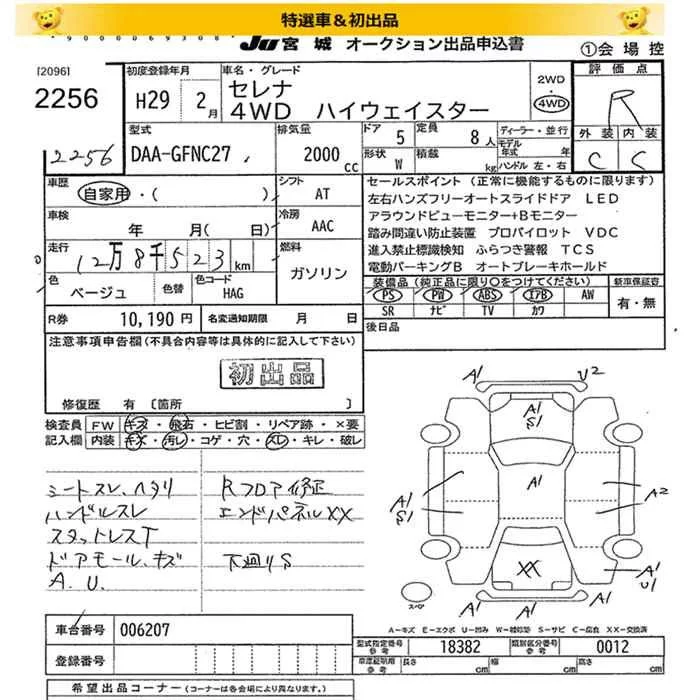 特選車&初出品
90000069308
JU宮城 オークション出品申込書
①会場控
[2096]
2256
2256
初度登録年月
H29 2月
車名・グレード
セレナ
4WD ハイウェイスター
2WD
・
4WD
評価点
R
外装 内装
C C
型式
DAA-GFNC27
排気量
2000 cc
ドア 5
定員 8人
形状 W
積載 kg
ディーラー・並行
モデル年式 年
ハンドル 左・右
車歴
自家用・( )
シフト
AT
車検
年 月( 日)
冷房
AAC
走行
12万8千523 km
燃料
ガソリン
色
ベージュ
色替
色コード
HAG
R券 10,190 円
名変通知期限 月 日
セールスポイント (正常に機能するものに限ります)
左右ハンズフリーオートスライドドア LED
アラウンドビューモニター+Bモニター
踏み間違い防止装置 プロパイロット VDC
進入禁止標識検知 ふらつき警報 TCS
電動パーキングB オートブレーキホールド
装備品 (純正品に限り○をつけてください)
PS PW ABS エアB AW
SR ナビ TV カワ
新車保証書
有・無
後日品
注意事項申告欄(不具合内容等は具体的に記入して下さい)
初出品
修復歴 有 〔箇所 〕
検査員
記入欄
FW キズ・飛石・ヒビ割・リペア跡・×要
内装 キズ・汚レ・コゲ・穴・スレ・キレ・破レ
シートスレ、ヘタリ
ハンドルスレ
スタットレスT
ドアモール、キズ
A.U.
Rフロア修正
エンドパネルXX
下廻りS
A1 U2
A1
S1
A1
A1
S1
A2
XX
A1
U1
A1 A1
スペア
A-キズ E-エクボ U-凹み W-補修跡 S-サビ C-腐食 XX-交換済
車台番号 006207
登録番号
型式指定番号
参考
18382
類別区分番号
参考
0012
車庫証明用
参考
長さ cm
幅 cm
高さ cm
希望出品コーナー (コーナーは各会場により異なります。)